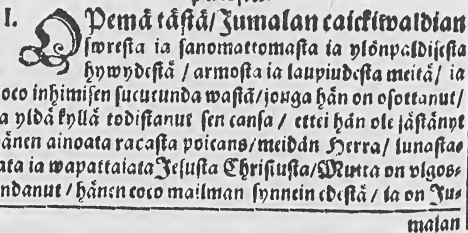 I. OPemä tästä/ Jumalan caickiwaldian
suresta ia sanomattomasta ia ylönpaldisesta
hywydestä / armosta ia laupiudesta meitä/ ia
oco inhimisen sucucunda wasta/ jonga hän on osottanut/
a yldä kyllä todistanut sen cansa / ettei hän ole säästänyt
änen ainoata racasta poicans/ meidän Herra/ lunasta-
ata ia wapattaiata Jesusta Christusta/ Mutta on vlgos-
ndanut / hänen coco mailman synnein edestä / ia on Ju-
malan